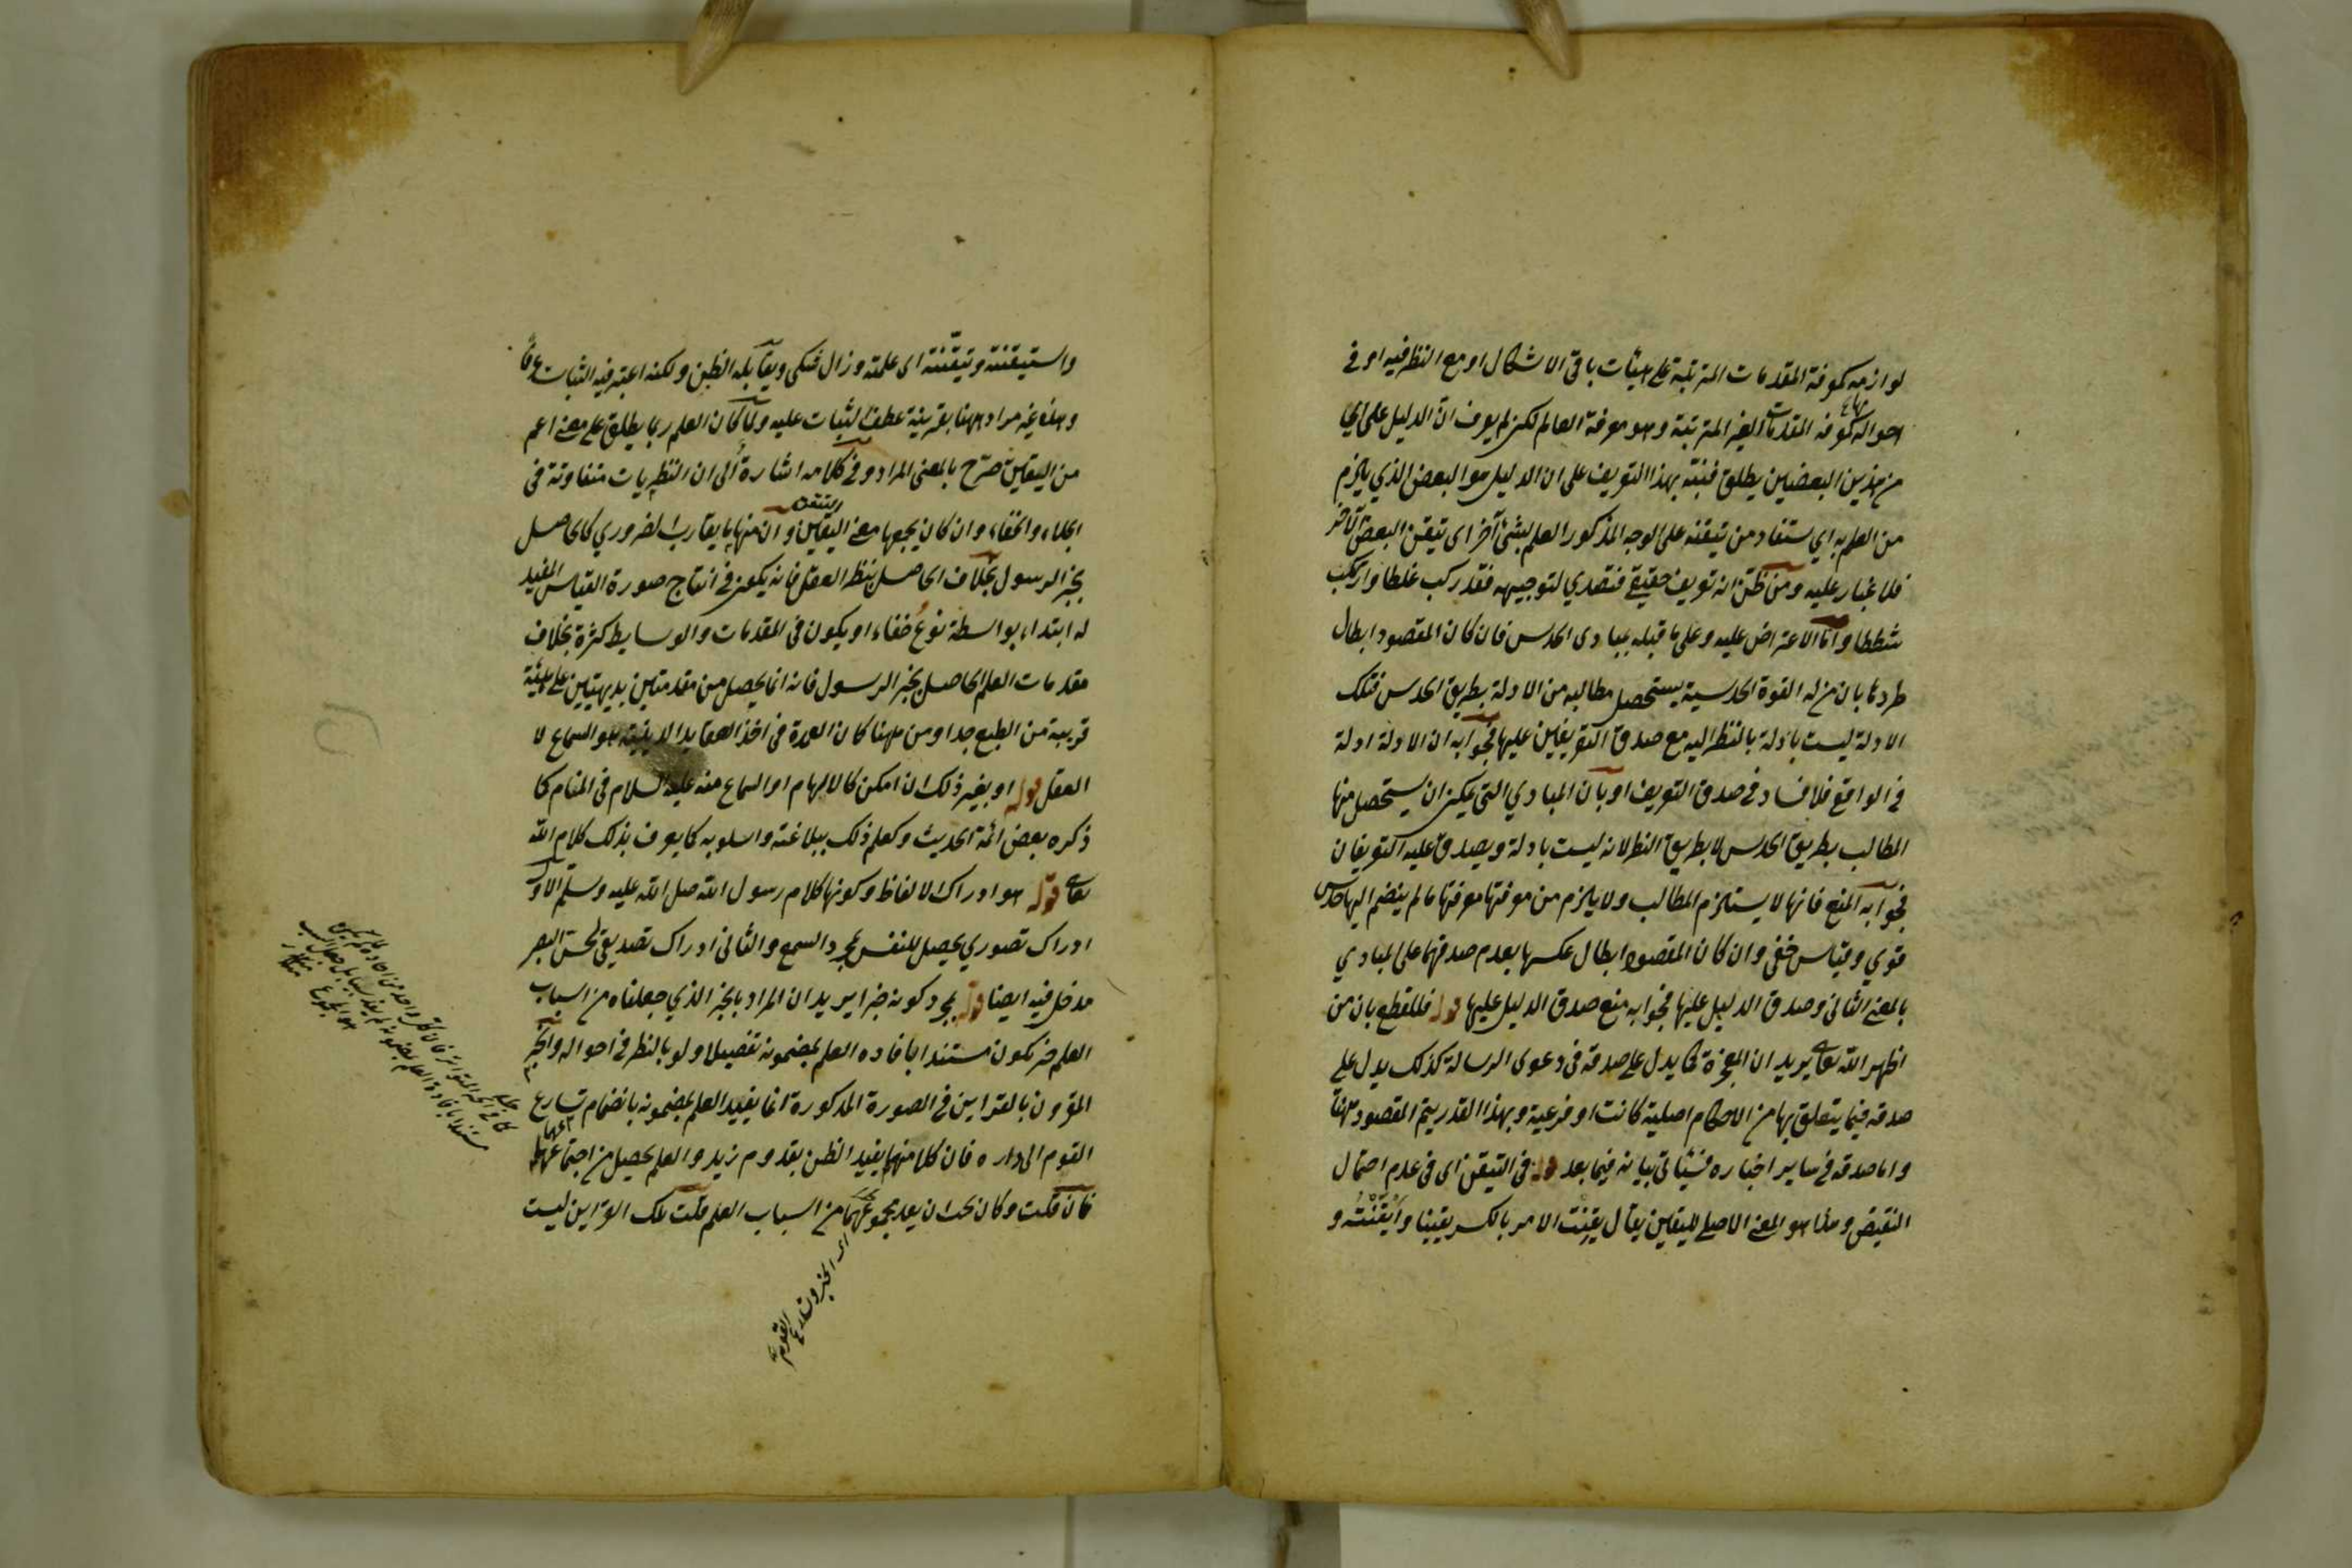 لوازمه كمعرفة المقدمات المترتبة على هيئات باقي الاشكال او مع النظر فيه او في
احواله كمعرفة المقدمات الغير المترتبة وهو معرفة العالم لكن لم يعرف ان الدليل على اي
من هذين البعضين يطلق فنبه بهذا التعريف على ان الدليل هو البعض الذي يلزم
من العلم به اي يستفاد من تيقنه على الوجه المذكور العلم بشئ آخر اى تيقن البعض الآخر
فلا غبار عليه ومن ظن انه تعريف حقيقي فتصدي لتوجيهه فقد ركب غلطا وارتكب
شططا واما الاعتراض عليه وعلى ما قبله بمبادى الحدس فان كان المقصود ابطال
طردهما بان من له القوة الحدسية يستحصل مطالبه من الادلة بطريق الحدس فتلك
الادلة ليست بادلة بالنظر اليه مع صدق التعريفين عليها فجوابه ان الادلة ادلة
في الواقع فلا فساد في صدق التعريف او بان المبادي التي يمكن ان يستحصل منها
المطالب بطريق الحدس لا بطريق النظر لانه ليست بادلة ويصدق عليه التعريفان
فجوابه المنع فانها لا يستلزم المطالب ولا يلزم من معرفتها معرفتها ما لم ينضم اليها حدس
قوي وقياس خفي وان كان المقصود ابطال عكسها بعدم صدقهما على المبادي
بالمعنى الثاني وصدق الدليل عليها فجوابه منع صدق الدليل عليها قوله فللقطع بان من
اظهر الله تعالى يريد ان المعجزة كما يدل على صدقه في دعوى الرسالة كذلك يدل على
صدقه فيما يتعلق بها من الاحكام اصلية كانت او فرعية وبهذا القدر يتم المقصود ههنا
واما صدقه في ساير اخباره فسيأتي بيانه فيما بعد قوله في التيقن اى في عدم احتمال
النقيض وهذا هو المعنى الاصلي لليقين يقال يقنت الامر بالكسر يقينا وايقنته و
واستيقنته وتيقنته اى علمته وزال شكى ويقابله الظن ولكنه اعتبر فيه الثبات عرفا
وهذه غير مراد ههنا بقرينة عطف الثبات عليه ولما كان العلم ربما يطلق على معنى اعم
من اليقين صرح بالمعنى المراد وفي كلامه اشارة الى ان النظريات متفاوتة في
الجلاء والخفاء وان كان يجمعها معنى اليقين وان منها ما يقارب الضروري كالحاصل
بخبر الرسول بخلاف الحاصل بنظر العقل فانه يكون في انتاج صورة القياس المفيد
له ابتداء بواسطة نوع خفاء او يكون في المقدمات والوسايط كثرة بخلاف
مقدمات العلم الحاصل بخبر الرسول فانه انما يحصل من مقدمتين بديهيتين على هيئة
قريبة من الطبع جدا ومن ههنا كان العمدة في اخذ العقايد الدينية هو السماع لا
العقل قوله او بغير ذلك ان امكن كالالهام او السماع منه عليه السلام في المنام كما
ذكره بعض ائمة الحديث وكعلم ذلك ببلاغته واسلوبه كما يعرف بذلك كلام الله
تعالى قوله هو ادراك الالفاظ وكونها كلام رسول الله صلى الله عليه وسلم الاول
ادراك تصوري يحصل للنفس بمجرد السمع والثاني ادراك تصديقي لحس البصر
مدخل فيه ايضا قوله بمجرد كونه خبرا يريد ان المراد بالخبر الذي جعلناه من اسباب
العلم خبر يكون مستندا بافاده العلم بمضمونه تفصيلا ولو بالنظر في احواله والخبر
المقرون بالقراين في الصورة المذكورة انما يفيد العلم بمضمونه بانضمام تسارع
القوم الى داره فان كلا منهما يفيد الظن بقدوم زيد والعلم يحصل من اجتماعهما
فان قلت وكان يجب ان يعد مجموعهما من اسباب العلم قلت تلك القراين ليست
اى الخبر وتسارع القوم